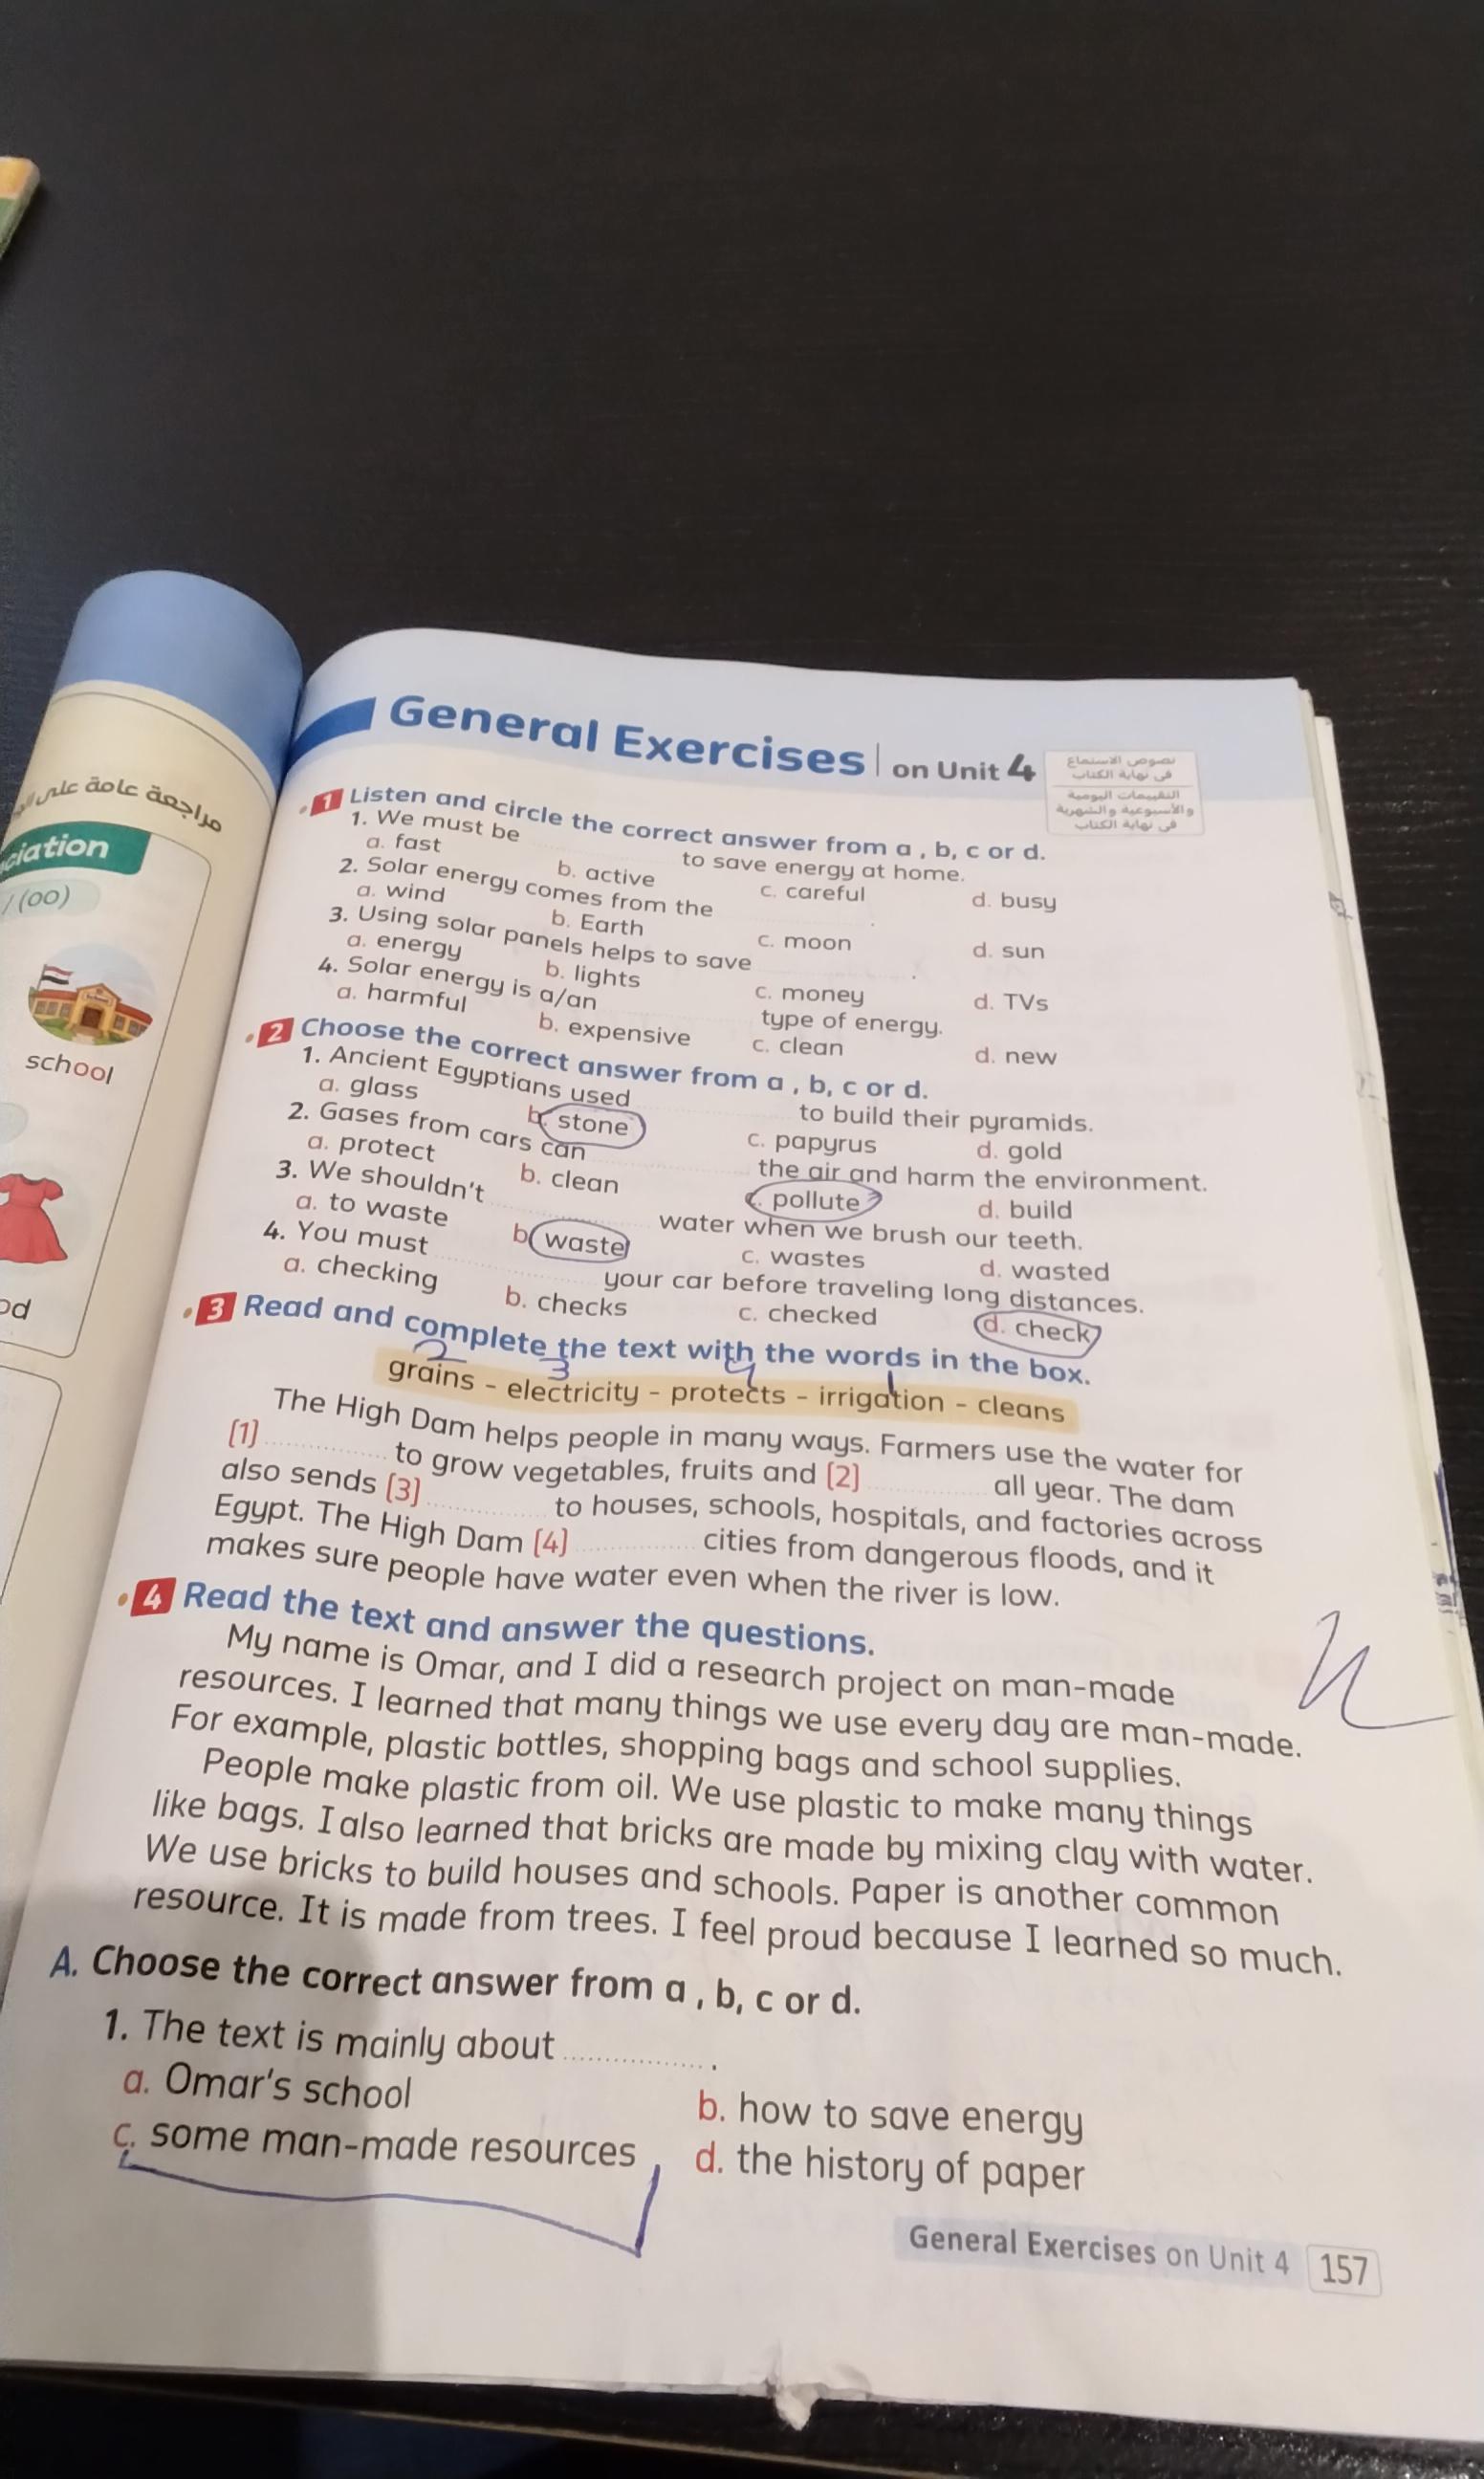 مراجعة عامة على
ciation
/ (oo)
school
od
General Exercises on Unit 4
نصوص الاستماع
فى نهاية الكتاب
التقييمات اليومية
والأسبوعية والشهرية
فى نهاية الكتاب
1 Listen and circle the correct answer from a , b, c or d.
1. We must be ............ to save energy at home.
a. fast b. active c. careful d. busy
2. Solar energy comes from the ............ .
a. wind b. Earth c. moon d. sun
3. Using solar panels helps to save ............ .
a. energy b. lights c. money d. TVs
4. Solar energy is a/an ............ type of energy.
a. harmful b. expensive c. clean d. new
2 Choose the correct answer from a , b, c or d.
1. Ancient Egyptians used ............ to build their pyramids.
a. glass b. stone c. papyrus d. gold
2. Gases from cars can ............ the air and harm the environment.
a. protect b. clean c. pollute d. build
3. We shouldn't ............ water when we brush our teeth.
a. to waste b. waste c. wastes d. wasted
4. You must ............ your car before traveling long distances.
a. checking b. checks c. checked d. check
3 Read and complete the text with the words in the box.
2 3 4 1
grains - electricity - protects - irrigation - cleans
The High Dam helps people in many ways. Farmers use the water for
(1) ............ to grow vegetables, fruits and (2) ............ all year. The dam
also sends (3) ............ to houses, schools, hospitals, and factories across
Egypt. The High Dam (4) ............ cities from dangerous floods, and it
makes sure people have water even when the river is low.
4 Read the text and answer the questions.
My name is Omar, and I did a research project on man-made
resources. I learned that many things we use every day are man-made.
For example, plastic bottles, shopping bags and school supplies.
People make plastic from oil. We use plastic to make many things
like bags. I also learned that bricks are made by mixing clay with water.
We use bricks to build houses and schools. Paper is another common
resource. It is made from trees. I feel proud because I learned so much.
A. Choose the correct answer from a , b, c or d.
1. The text is mainly about ............ .
a. Omar's school b. how to save energy
c. some man-made resources d. the history of paper
General Exercises on Unit 4 157